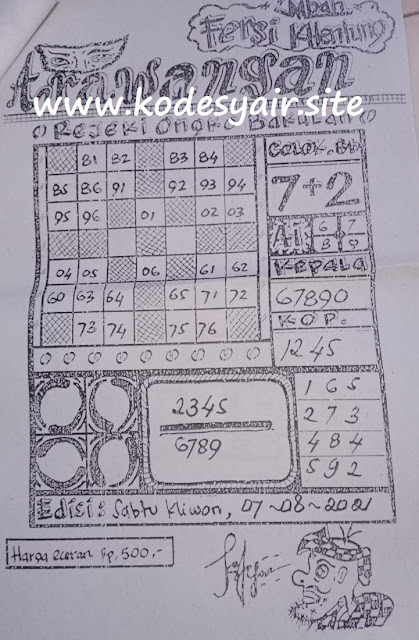 Mbah
Fersi Klentung
Trawangan
www.kodesyair.site
Rejeki Ongko Bakulan
81 82 83 84
85 86 91 92 93 94
95 96 01 02 03
04 05 06 61 62
60 63 64 65 71 72
73 74 75 76
COLOK. BH
7+2
AI 6 7
8 9
KEPALA
67890
KOP.
1245
2345
6789
1 6 5
2 7 3
4 8 4
5 9 2
Edisi: Sabtu Kliwon, 07-08-2021
Harga eceran Rp, 500,-